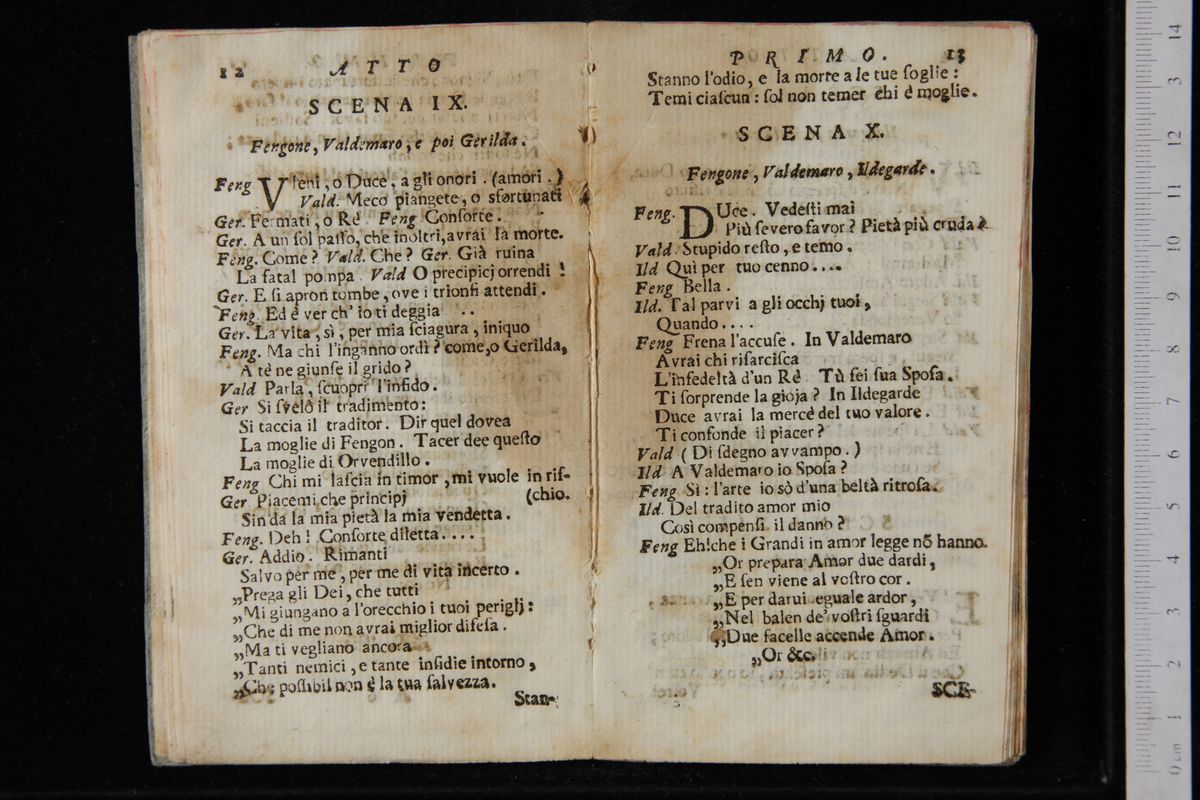 12 ATTO
SCENA IX.
Fengone, Valdemaro, e poi Gerilda.
Feng VIeni, o Duce, a gli onori. (amori.)
Vald. Meco piangete, o sfortunati
Ger. Fermati, o Rè. Feng Conſorte.
Ger. A un ſol paſſo, che inoltri, avrai la morte.
Feng. Come? Vald. Che? Ger. Già ruina
La fatal pompa. Vald O precipicj orrendi!
Ger. E ſi apron tombe, ove i trionfi attendi.
Feng. Ed è ver ch' io ti deggia ..
Ger. La vita, sì, per mia ſciagura, iniquo
Feng. Ma chi l'inganno ordì? come, o Gerilda,
A tè ne giunſe il grido?
Vald Parla, ſcuopri l'infido.
Ger Si ſvelò il tradimento:
Si taccia il traditor. Dir quel dovea
La moglie di Fengon. Tacer dee queſto
La moglie di Orvendillo.
Feng Chi mi laſcia in timor, mi vuole in riſ-
Ger Piacemi che principj (chio.
Sin da la mia pietà la mia vendetta.
Feng. Deh! Conſorte diletta....
Ger. Addio. Rimanti
Salvo per me, per me di vita incerto.
„Prega gli Dei, che tutti
„Mi giungano a l'orecchio i tuoi periglj:
„Che di me non avrai miglior difeſa.
„Ma ti vegliano ancora
„Tanti nemici, e tante inſidie intorno,
„Che poſſibil non è la tua ſalvezza.
Stan-
PRIMO. 13
Stanno l'odio, e la morte a le tue ſoglie:
Temi ciaſcun: ſol non temer chi è moglie.
SCENA X.
Fengone, Valdemaro, Ildegarde.
Feng. DUce. Vedeſti mai
Più ſevero favor? Pietà più cruda?
Vald. Stupido reſto, e temo.
Ild Quì per tuo cenno....
Feng Bella.
Ild. Tal parvi a gli occhj tuoi,
Quando....
Feng Frena l'accuſe. In Valdemaro
Avrai chi riſarciſca
L'infedeltà d'un Rè. Tù ſei ſua Spoſa.
Ti ſorprende la gioja? In Ildegarde
Duce avrai la mercè del tuo valore.
Ti confonde il piacer?
Vald (Di ſdegno avvampo.)
Ild A Valdemaro io Spoſa?
Feng Sì: l'arte io sò d'una beltà ritroſa.
Ild. Del tradito amor mio
Così compenſi il danno?
Feng Eh! che i Grandi in amor legge nõ hanno.
„Or prepara Amor due dardi,
„E ſen viene al voſtro cor.
„E per darui eguale ardor,
„Nel balen de' voſtri ſguardi
„Due facelle accende Amor.
„Or &c.
SCE-
0 cm 1 2 3 4 5 6 7 8 9 10 11 12 3 14